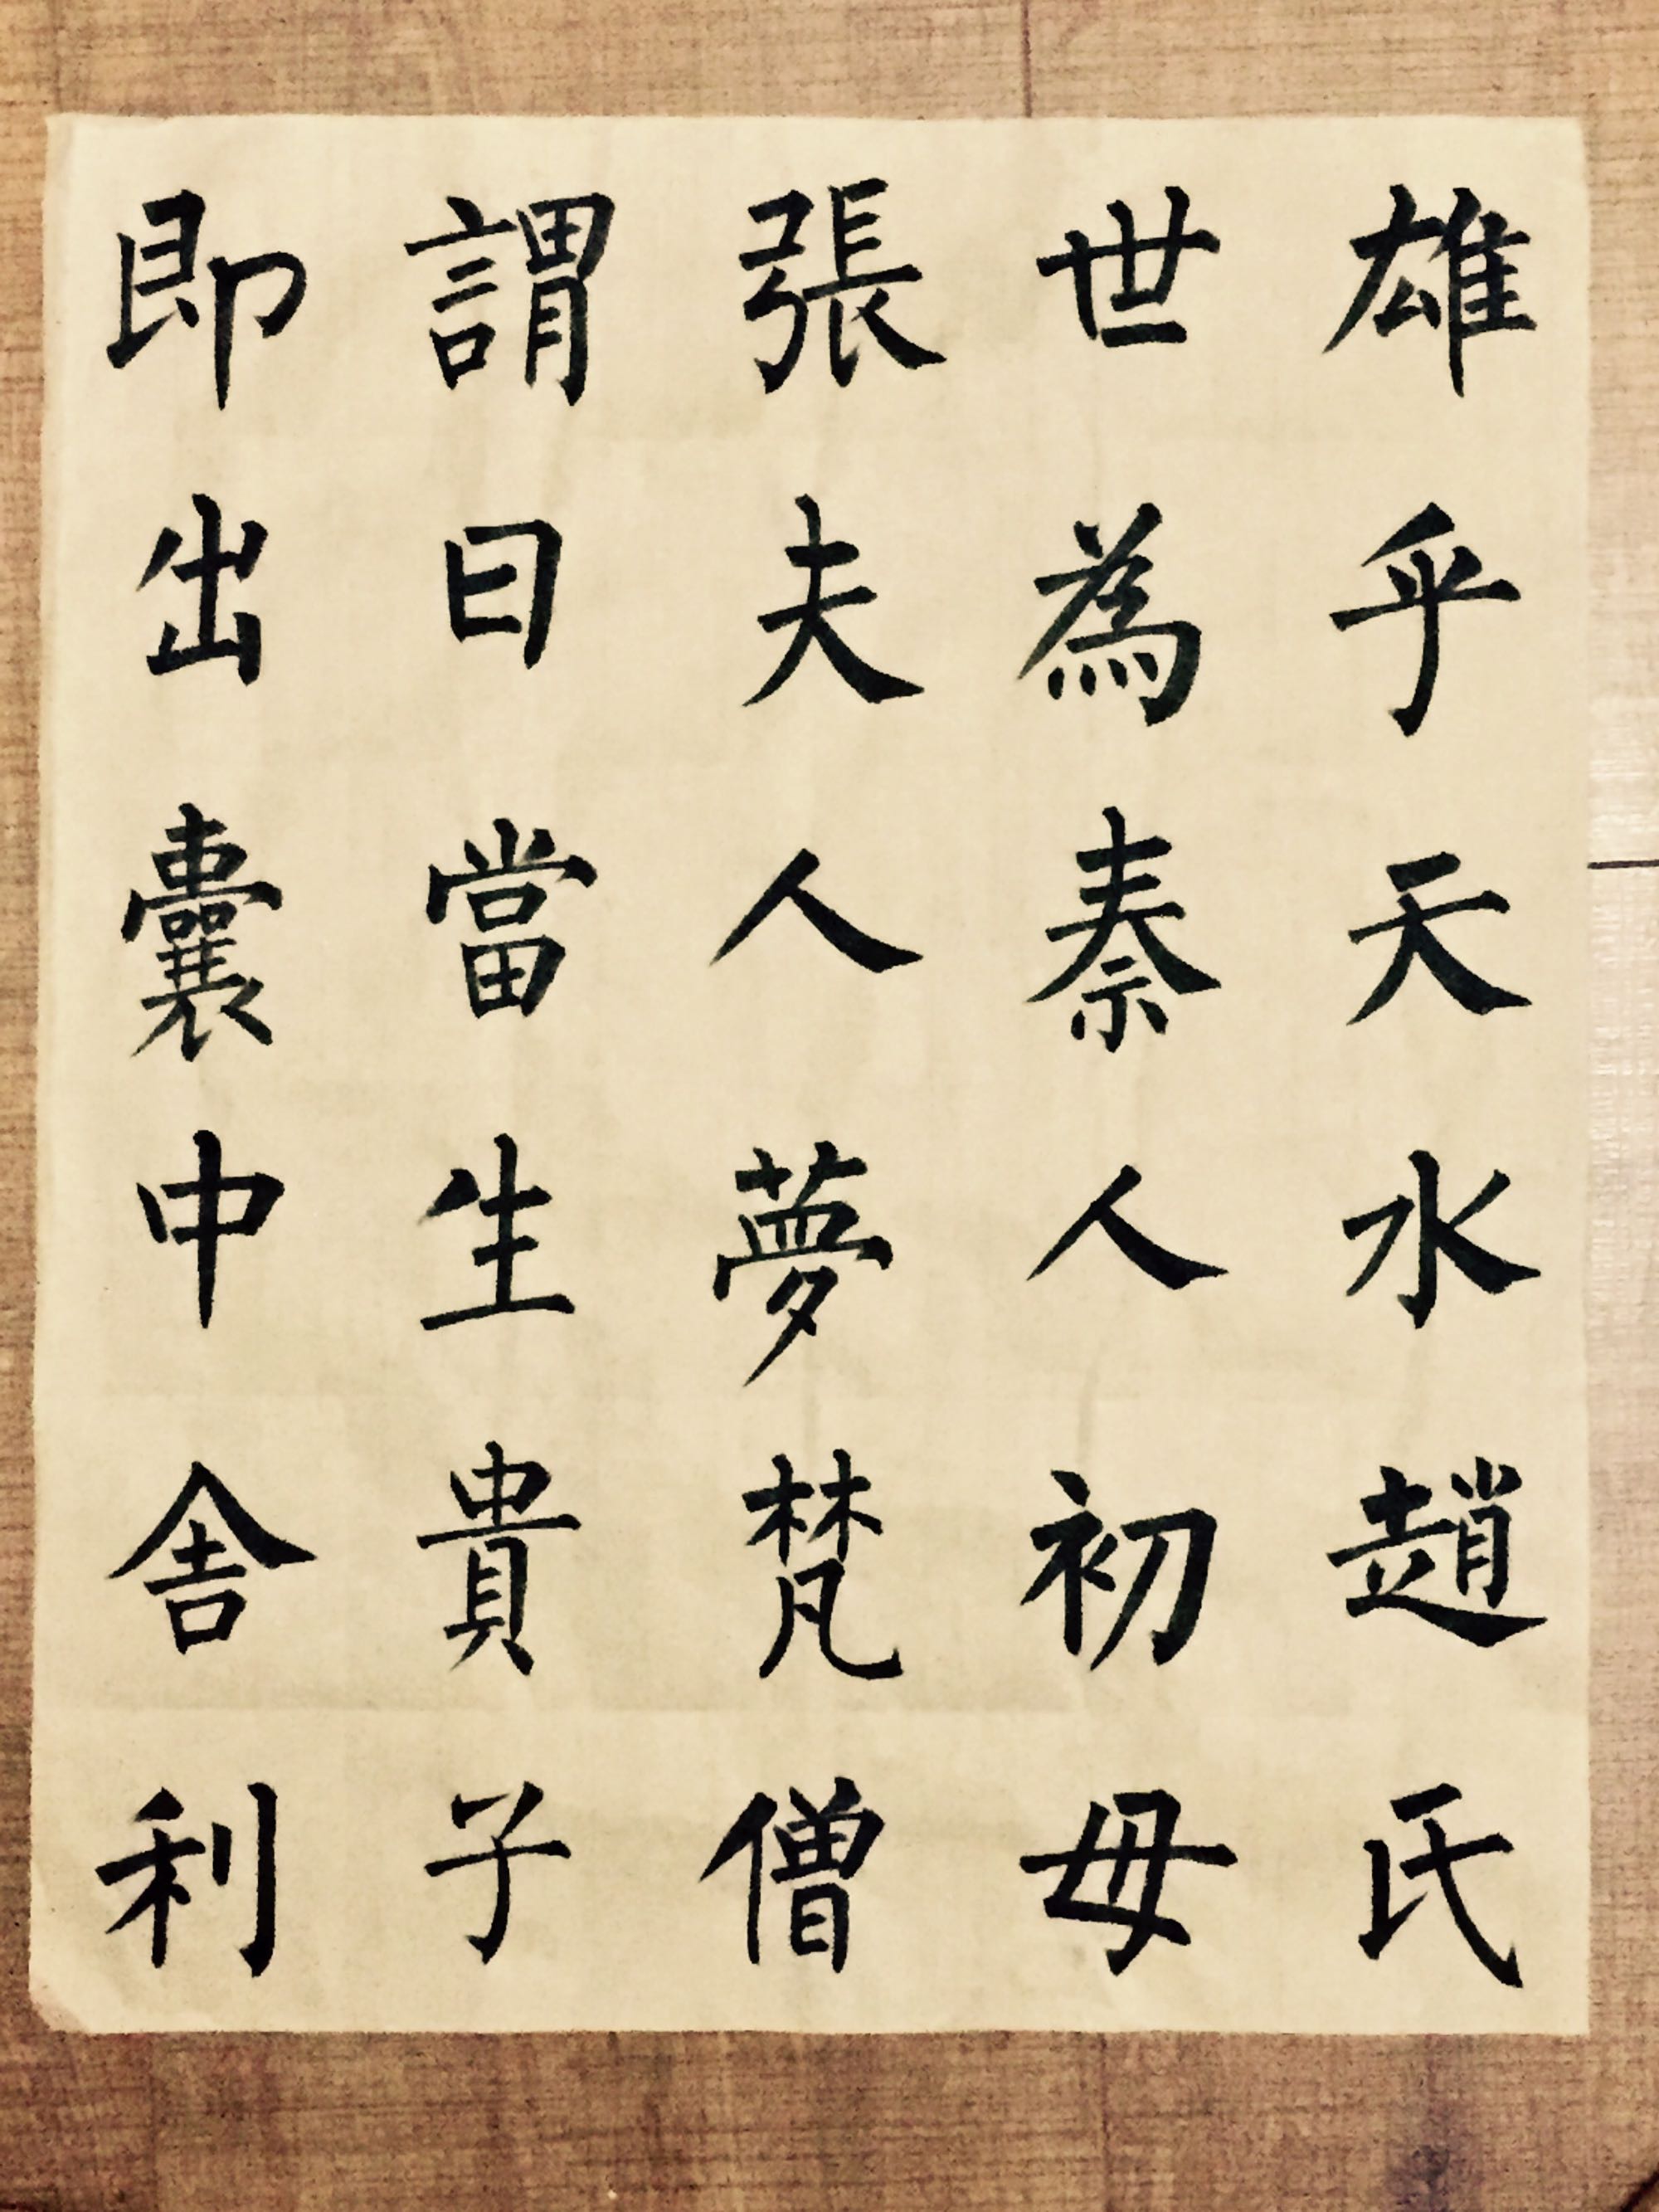 雄乎天水趙氏
世為秦人初母
張夫人夢梵僧
謂曰當生貴子
即出囊中舍利